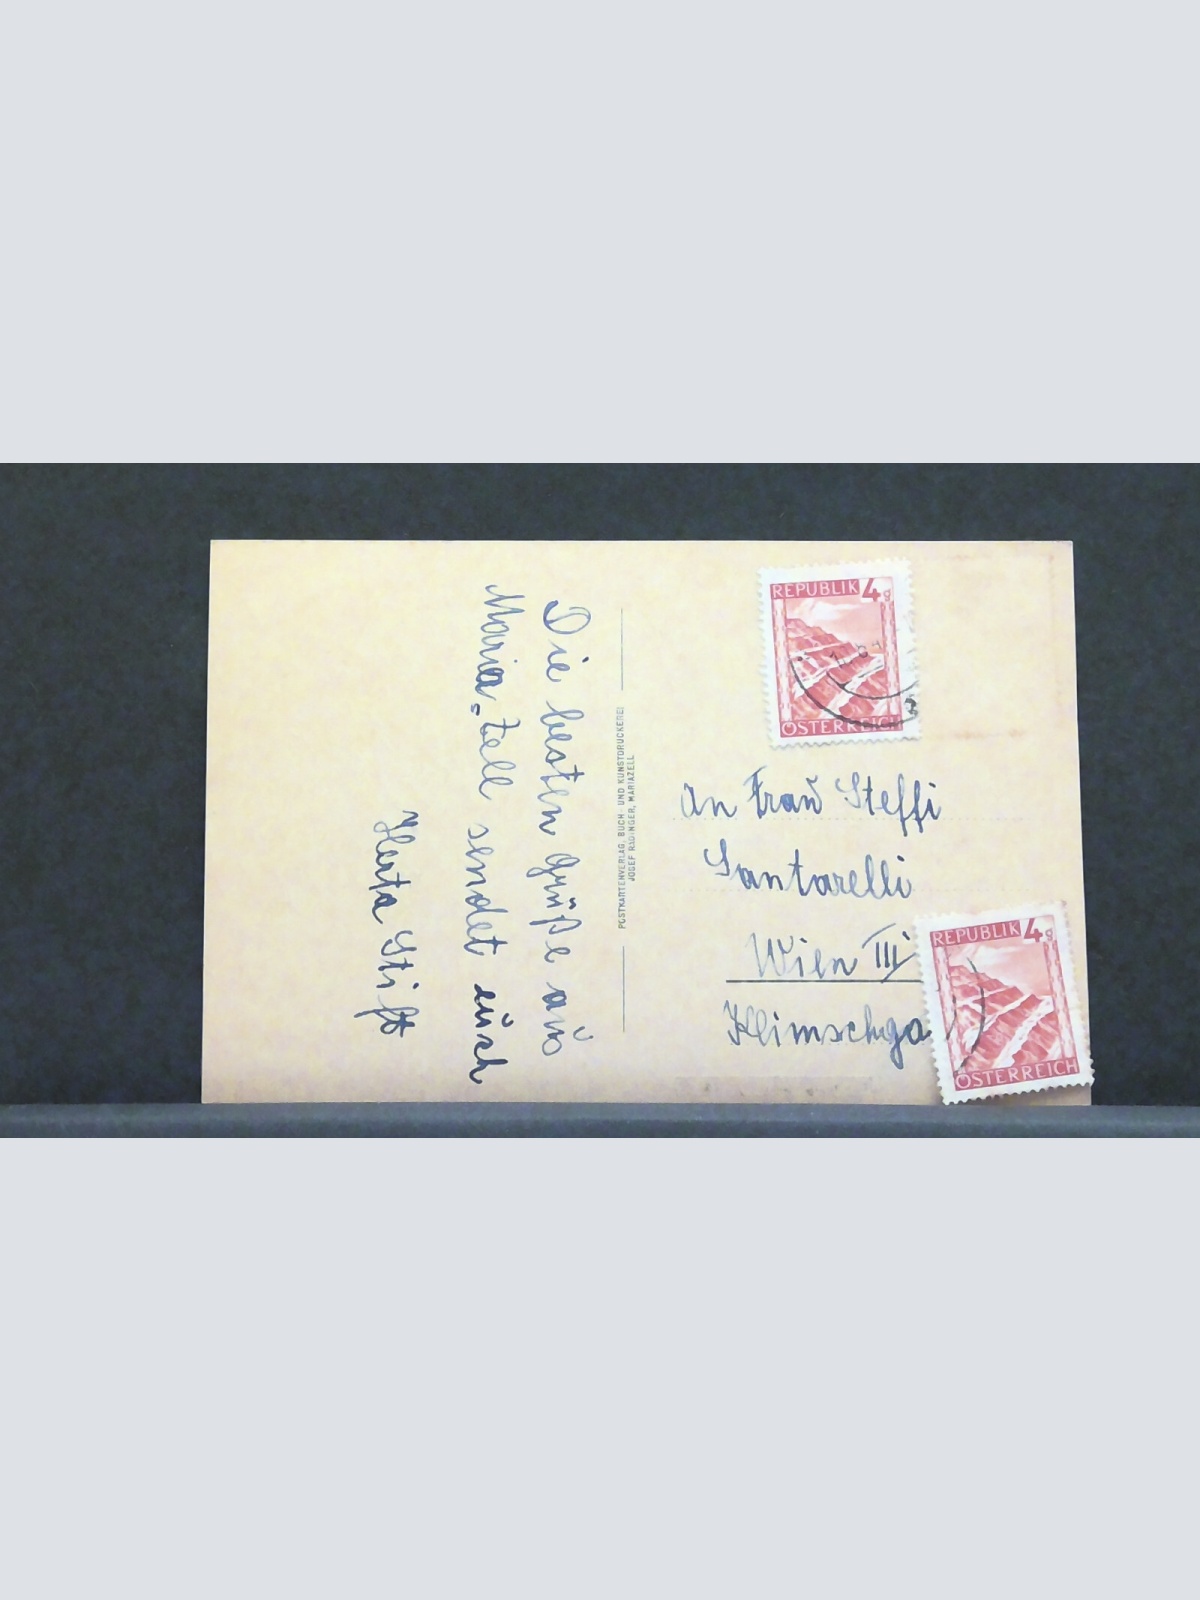 Die besten Grüße aus
Maria-Zell sendet euch
Herta Stift
POSTKARTENVERLAG, BUCH- UND KUNSTDRUCKEREI
JOSEF RADINGER, MARIAZELL
REPUBLIK 4g
ÖSTERREICH
An Frau Steffi
Santarelli
Wien III
Klimschga
REPUBLIK 4g
ÖSTERREICH